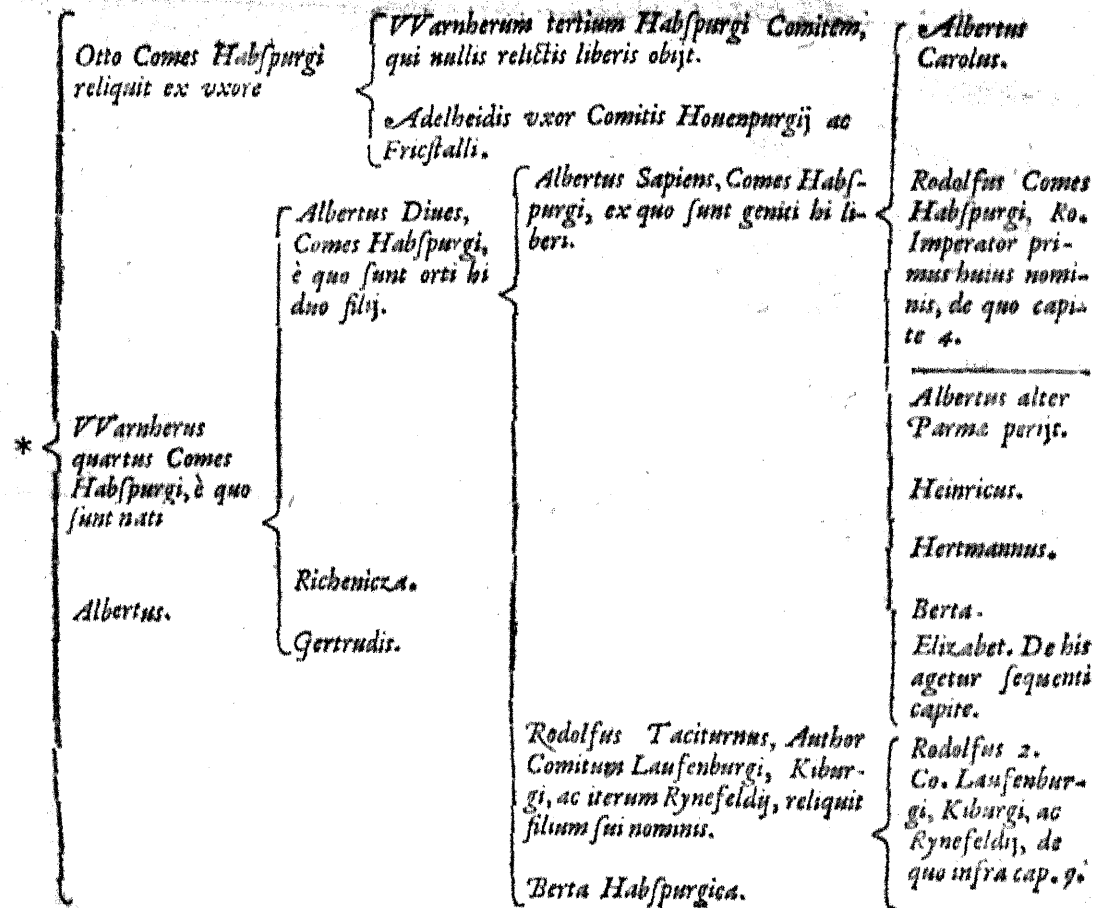 Otto Comes Habſpurgi
reliquit ex vxore
VVarnherum tertium Habſpurgi Comitem,
qui nullis relictis liberis obijt.
Adelheidis vxor Comitis Houenpurgij ac
Fricſtalli.
*
VVarnherus
quartus Comes
Habſpurgi, è quo
ſunt nati
Albertus.
Albertus Diues,
Comes Habſpurgi,
è quo ſunt orti hi
duo filij.
Richenicza.
Gertrudis.
Albertus Sapiens, Comes Habſ-
purgi, ex quo ſunt geniti hi li-
beri.
Rodolfus Taciturnus, Author
Comitum Laufenburgi, Kibur-
gi, ac iterum Rynefeldij, reliquit
filium ſui nominis.
Berta Habſpurgica.
Albertus
Carolus.
Rodolfus Comes
Habſpurgi, Ro.
Imperator pri-
mus huius nomi-
nis, de quo capi-
te 4.
Albertus alter
Parmæ perijt.
Heinricus.
Hertmannus.
Berta.
Elizabet. De his
agetur ſequenti
capite.
Rodolfus 2.
Co. Laufenbur-
gi, Kiburgi, ac
Rynefeldij, de
quo infra cap. 9.